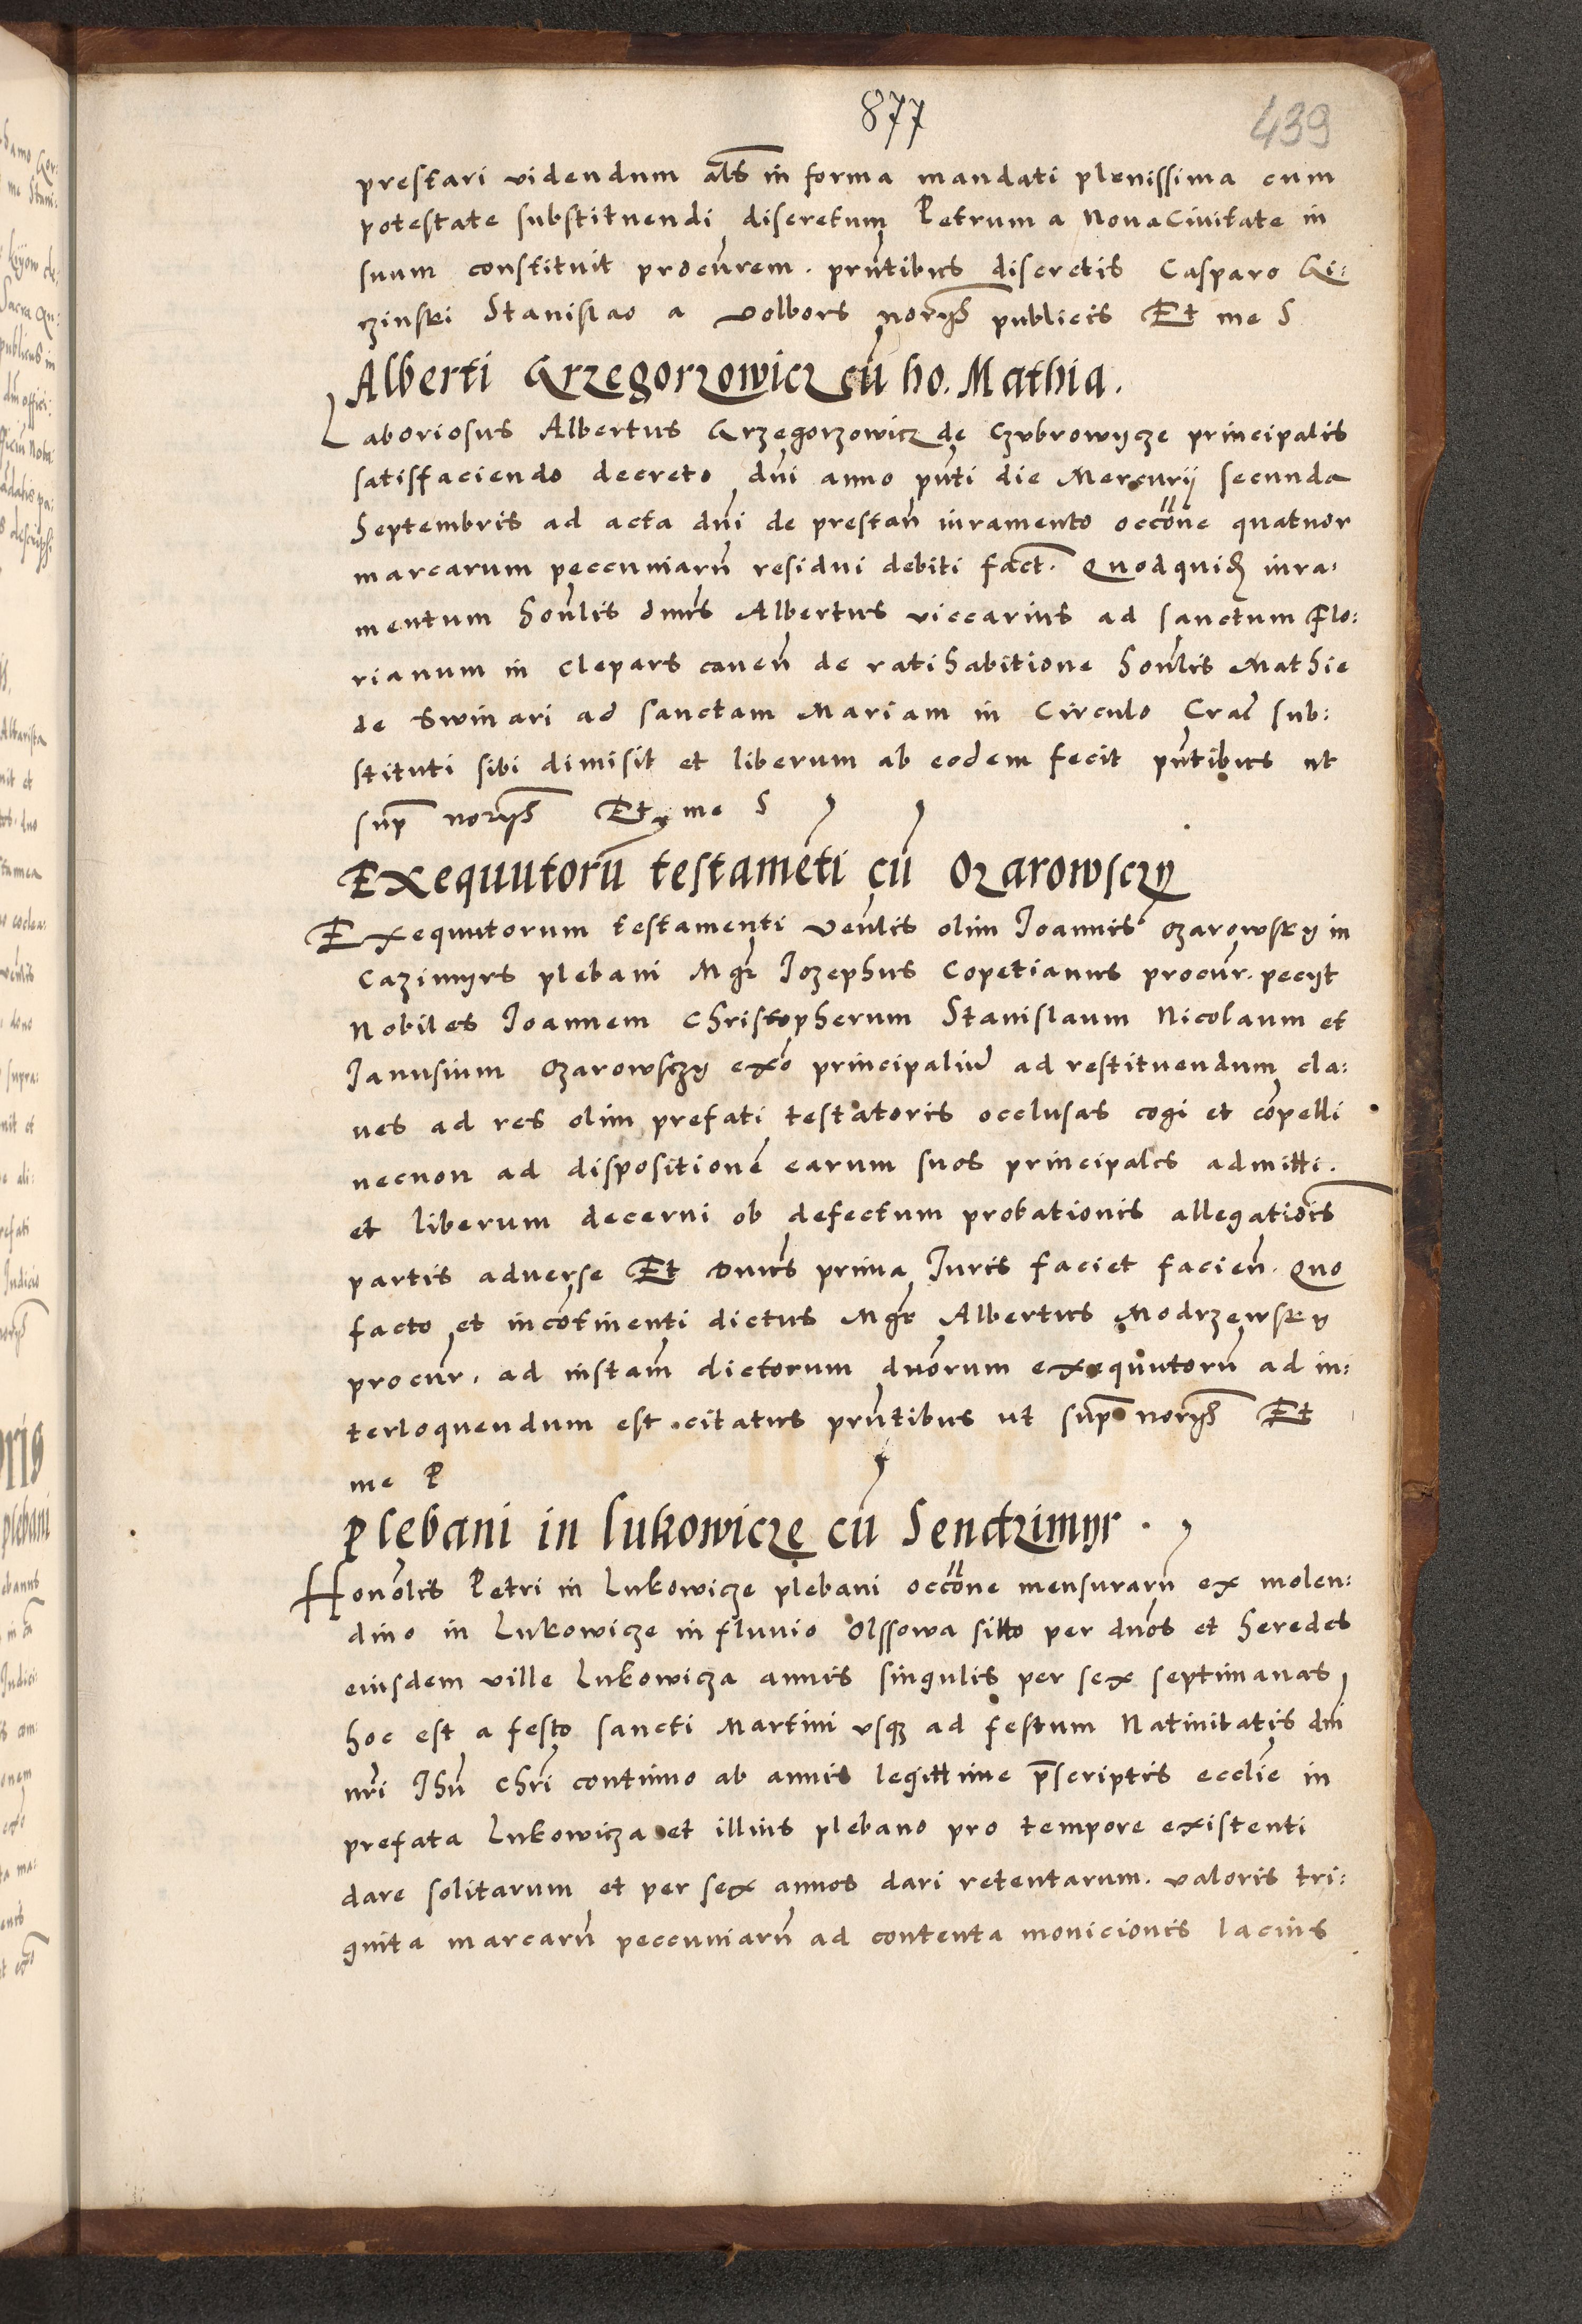 877
439
prestari videndum als in forma mandati plenissima cum
potestate substituendi discretum Petrum a Nova Civitate in
suum constituit procurem. pruntibus discretis Casparo Gi:
czinski Stanislao a Volbors noriis publicis Et me S
Alberti Grzegorzowicz cū ho. Mathia.
Laboriosus Albertus Grzegorzowicz de Czubrowycze principalis
satisfaciendo decreto dni anno pnti die Mercurij secunda
Septembris ad acta dni de prestan iuramento occōne quatuor
marcarum peccuniarū residui debiti fact. Quodquidē iura:
mentum honlis dnus Albertus viccarius ad sanctum Flo:
rianum in Clepars caven de ratihabitione honlis Mathie
de Swinari ad sanctam Mariam in Circulo Crac sub:
stituti sibi dimisit et liberum ab eodem fecit pntibus ut
sup noriis Et me S
Exequutorū testamēti cū Ozarowsczy
Exequutorum testamenti venlis olim Joannis Ozarowsky in
Cazimyrs plebani Mgr Jozephus Copetianus procur. pecyt
Nobiles Joannem Christopherum Stanislaum Nicolaum et
Janusium Ozarowsczy exō principaliū ad restituendum cla:
ves ad res olim prefati testatoris occlusas cogi et cōpelli
necnon ad dispositionē earum suos principales admitti.
et liberum decerni ob defectum probationis allegatiōis
partis adverse Et Dnus prima Juris faciet facien. Quo
facto et incōtinenti dictus Mgr Albertus Modrzewsky
procur. ad instam dictorum duorum exequutorū ad in:
terloquendum est citatus pruntibus ut sup noriis Et
me P
Plebani in Lukowicze cū Sendzimyr.
Honolis Petri in Lukowicze plebani occōne mensurarū ex molen:
dino in Lukowicze in fluvio Olssowa sitto per dnos et heredes
eiusdem ville Lukowicza annis singulis per sex septimanas
hoc est a festo sancti Martini usq ad festum Nativitatis dni
nri Jhu Chri continuo ab annis legittime pscriptis ecclie in
prefata Lukowicza et illius plebano pro tempore existenti
dare solitarum et per sex annos dari retentarum. valoris tri:
ginta marcarū peccuniarū ad contenta monicionis lacius